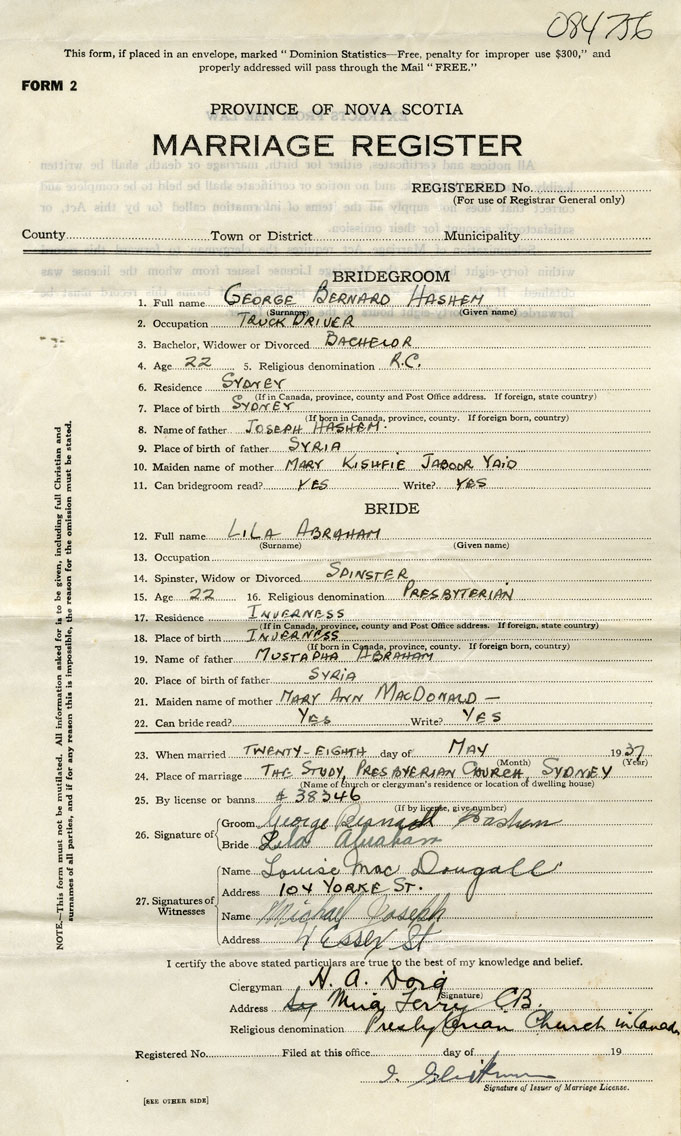 084756
This form, if placed in an envelope, marked "Dominion Statistics—Free, penalty for improper use $300," and
properly addressed will pass through the Mail "FREE."
FORM 2
PROVINCE OF NOVA SCOTIA
MARRIAGE REGISTER
REGISTERED No.
(For use of Registrar General only)
County Town or District Municipality
BRIDEGROOM
1. Full name GEORGE BERNARD HASHEM
(Surname) (Given name)
2. Occupation TRUCK DRIVER
3. Bachelor, Widower or Divorced BACHELOR
4. Age 22 5. Religious denomination R.C.
6. Residence SYDNEY
(If in Canada, province, county and Post Office address. If foreign, state country)
7. Place of birth SYDNEY
(If born in Canada, province, county. If foreign born, country)
8. Name of father JOSEPH HASHEM.
9. Place of birth of father SYRIA
10. Maiden name of mother MARY KISHFIE JABOOR YAID
11. Can bridegroom read? YES Write? YES
BRIDE
12. Full name LILA ABRAHAM
(Surname) (Given name)
13. Occupation
14. Spinster, Widow or Divorced SPINSTER
15. Age 22 16. Religious denomination PRESBYTERIAN
17. Residence INVERNESS
(If in Canada, province, county and Post Office address. If foreign, state country)
18. Place of birth INVERNESS
(If born in Canada, province, county. If foreign born, country)
19. Name of father MUSTAPHA ABRAHAM
20. Place of birth of father SYRIA
21. Maiden name of mother MARY ANN MACDONALD —
22. Can bride read? YES Write? YES
23. When married TWENTY-EIGHTH day of MAY 1937
(Month) (Year)
24. Place of marriage THE STUDY, PRESBYERIAN CHURCH, SYDNEY
(Name of church or clergyman's residence or location of dwelling house)
25. By license or banns # 38346
(If by license, give number)
26. Signature of Groom George Bernard Hashem
Bride Lila Abraham
27. Signatures of Witnesses
Name Louise Mac Dougall
Address 104 YORKE ST.
Name Michael Joseph
Address 4 Essex St
I certify the above stated particulars are true to the best of my knowledge and belief.
Clergyman H. A. Doig
(Signature)
Address Ferry C.B.
Religious denomination Presbyterian Church in Canada
Registered No. Filed at this office day of 19
Signature of Issuer of Marriage License.
[SEE OTHER SIDE]
NOTE.—This form must not be mutilated. All information asked for is to be given, including full Christian and
surnames of all parties, and if for any reason this is impossible, the reason for the omission must be stated.